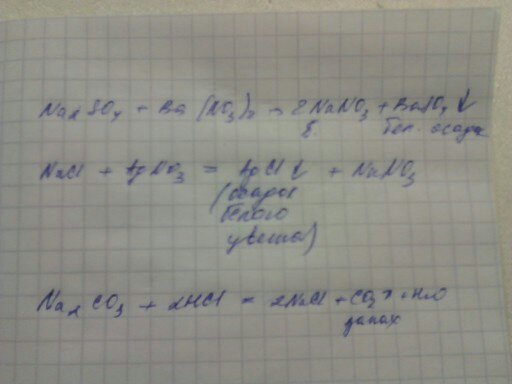 Na₂SO₄ + Ba(NO₃)₂ → 2NaNO₃ + BaSO₄↓
бел. осадок
NaCl + AgNO₃ = AgCl↓ + NaNO₃
(осадок
белого
цвета)
Na₂CO₃ + 2HCl = 2NaCl + CO₂↑ + H₂O
запах